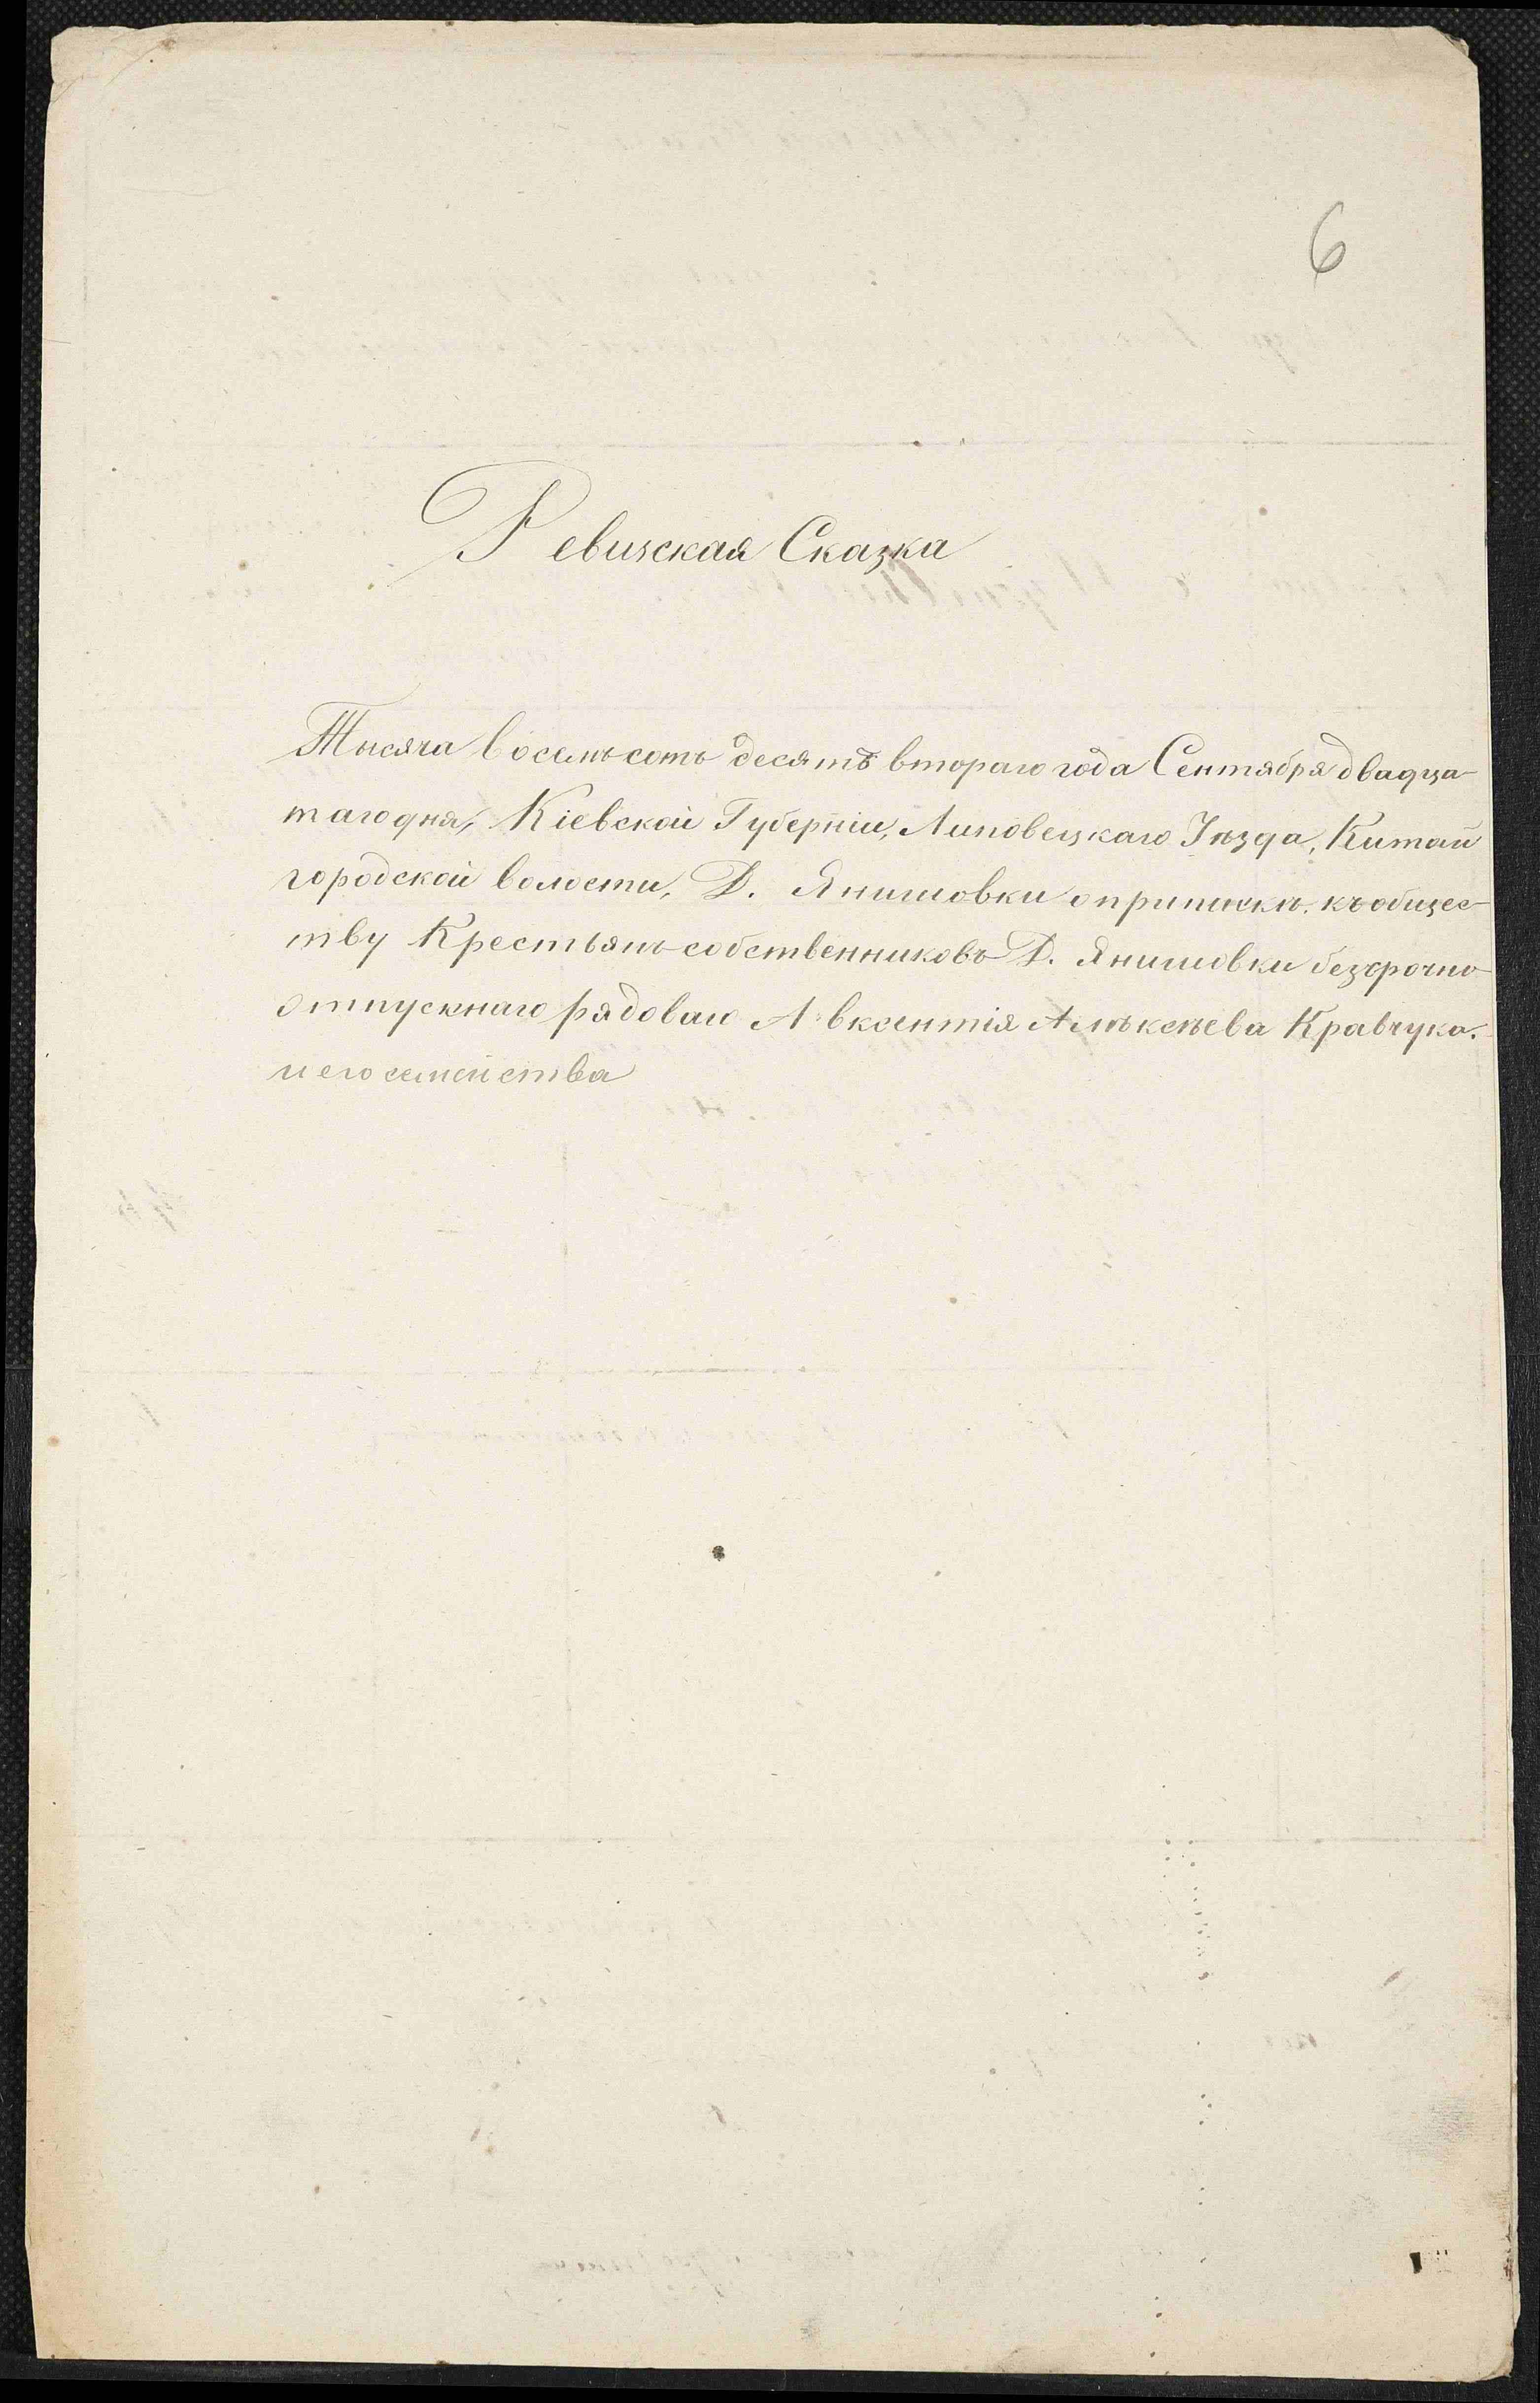 6
Ревизская Сказка
Тысяча восемьсотъ десятъ втораго года Сентября двадца-
таго дня, Кіевской Губерніи, Липовецкаго Уѣзда, Китай
городской волости, Д. Янишовки о припискѣ къ общес-
тву Крестьянъ собственниковъ Д. Янишовки безсрочно
отпускнаго рядоваго Авксентія Алѣксѣева Кравчука.
и его семейства